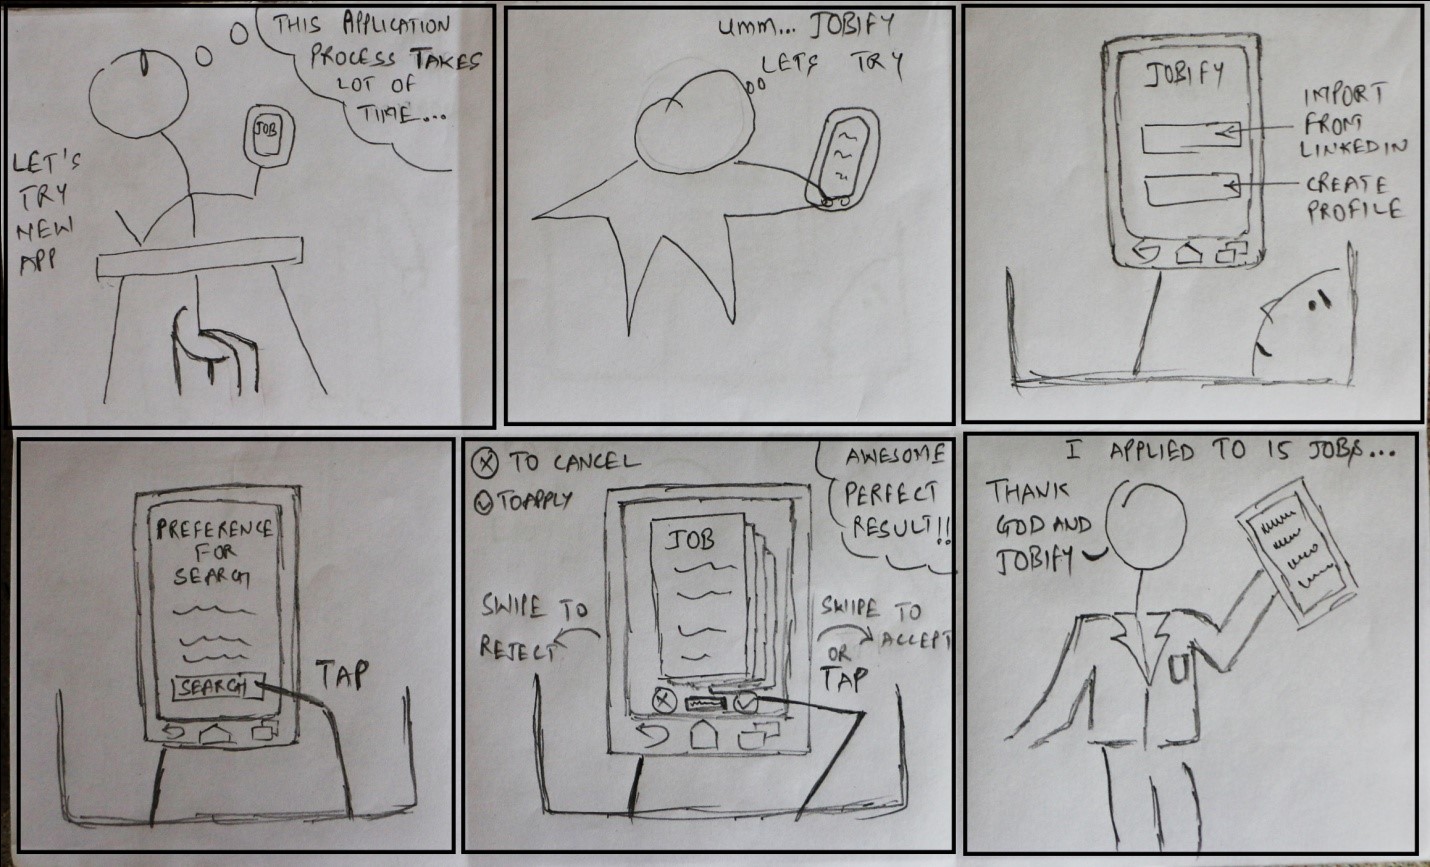 THIS APPLICATION
PROCESS TAKES
LOT OF
TIME...
JOB
LET'S
TRY
NEW
APP
umm... JOBIFY
LETS TRY
JOBIFY
IMPORT
FROM
LINKEDIN
CREATE
PROFILE
PREFERENCE
FOR
SEARCH
SEARCH
TAP
TO CANCEL
TO APPLY
AWESOME
PERFECT
RESULT!!
JOB
SWIPE TO
REJECT
SWIPE TO
ACCEPT
OR
TAP
I APPLIED TO 15 JOBS...
THANK
GOD AND
JOBIFY